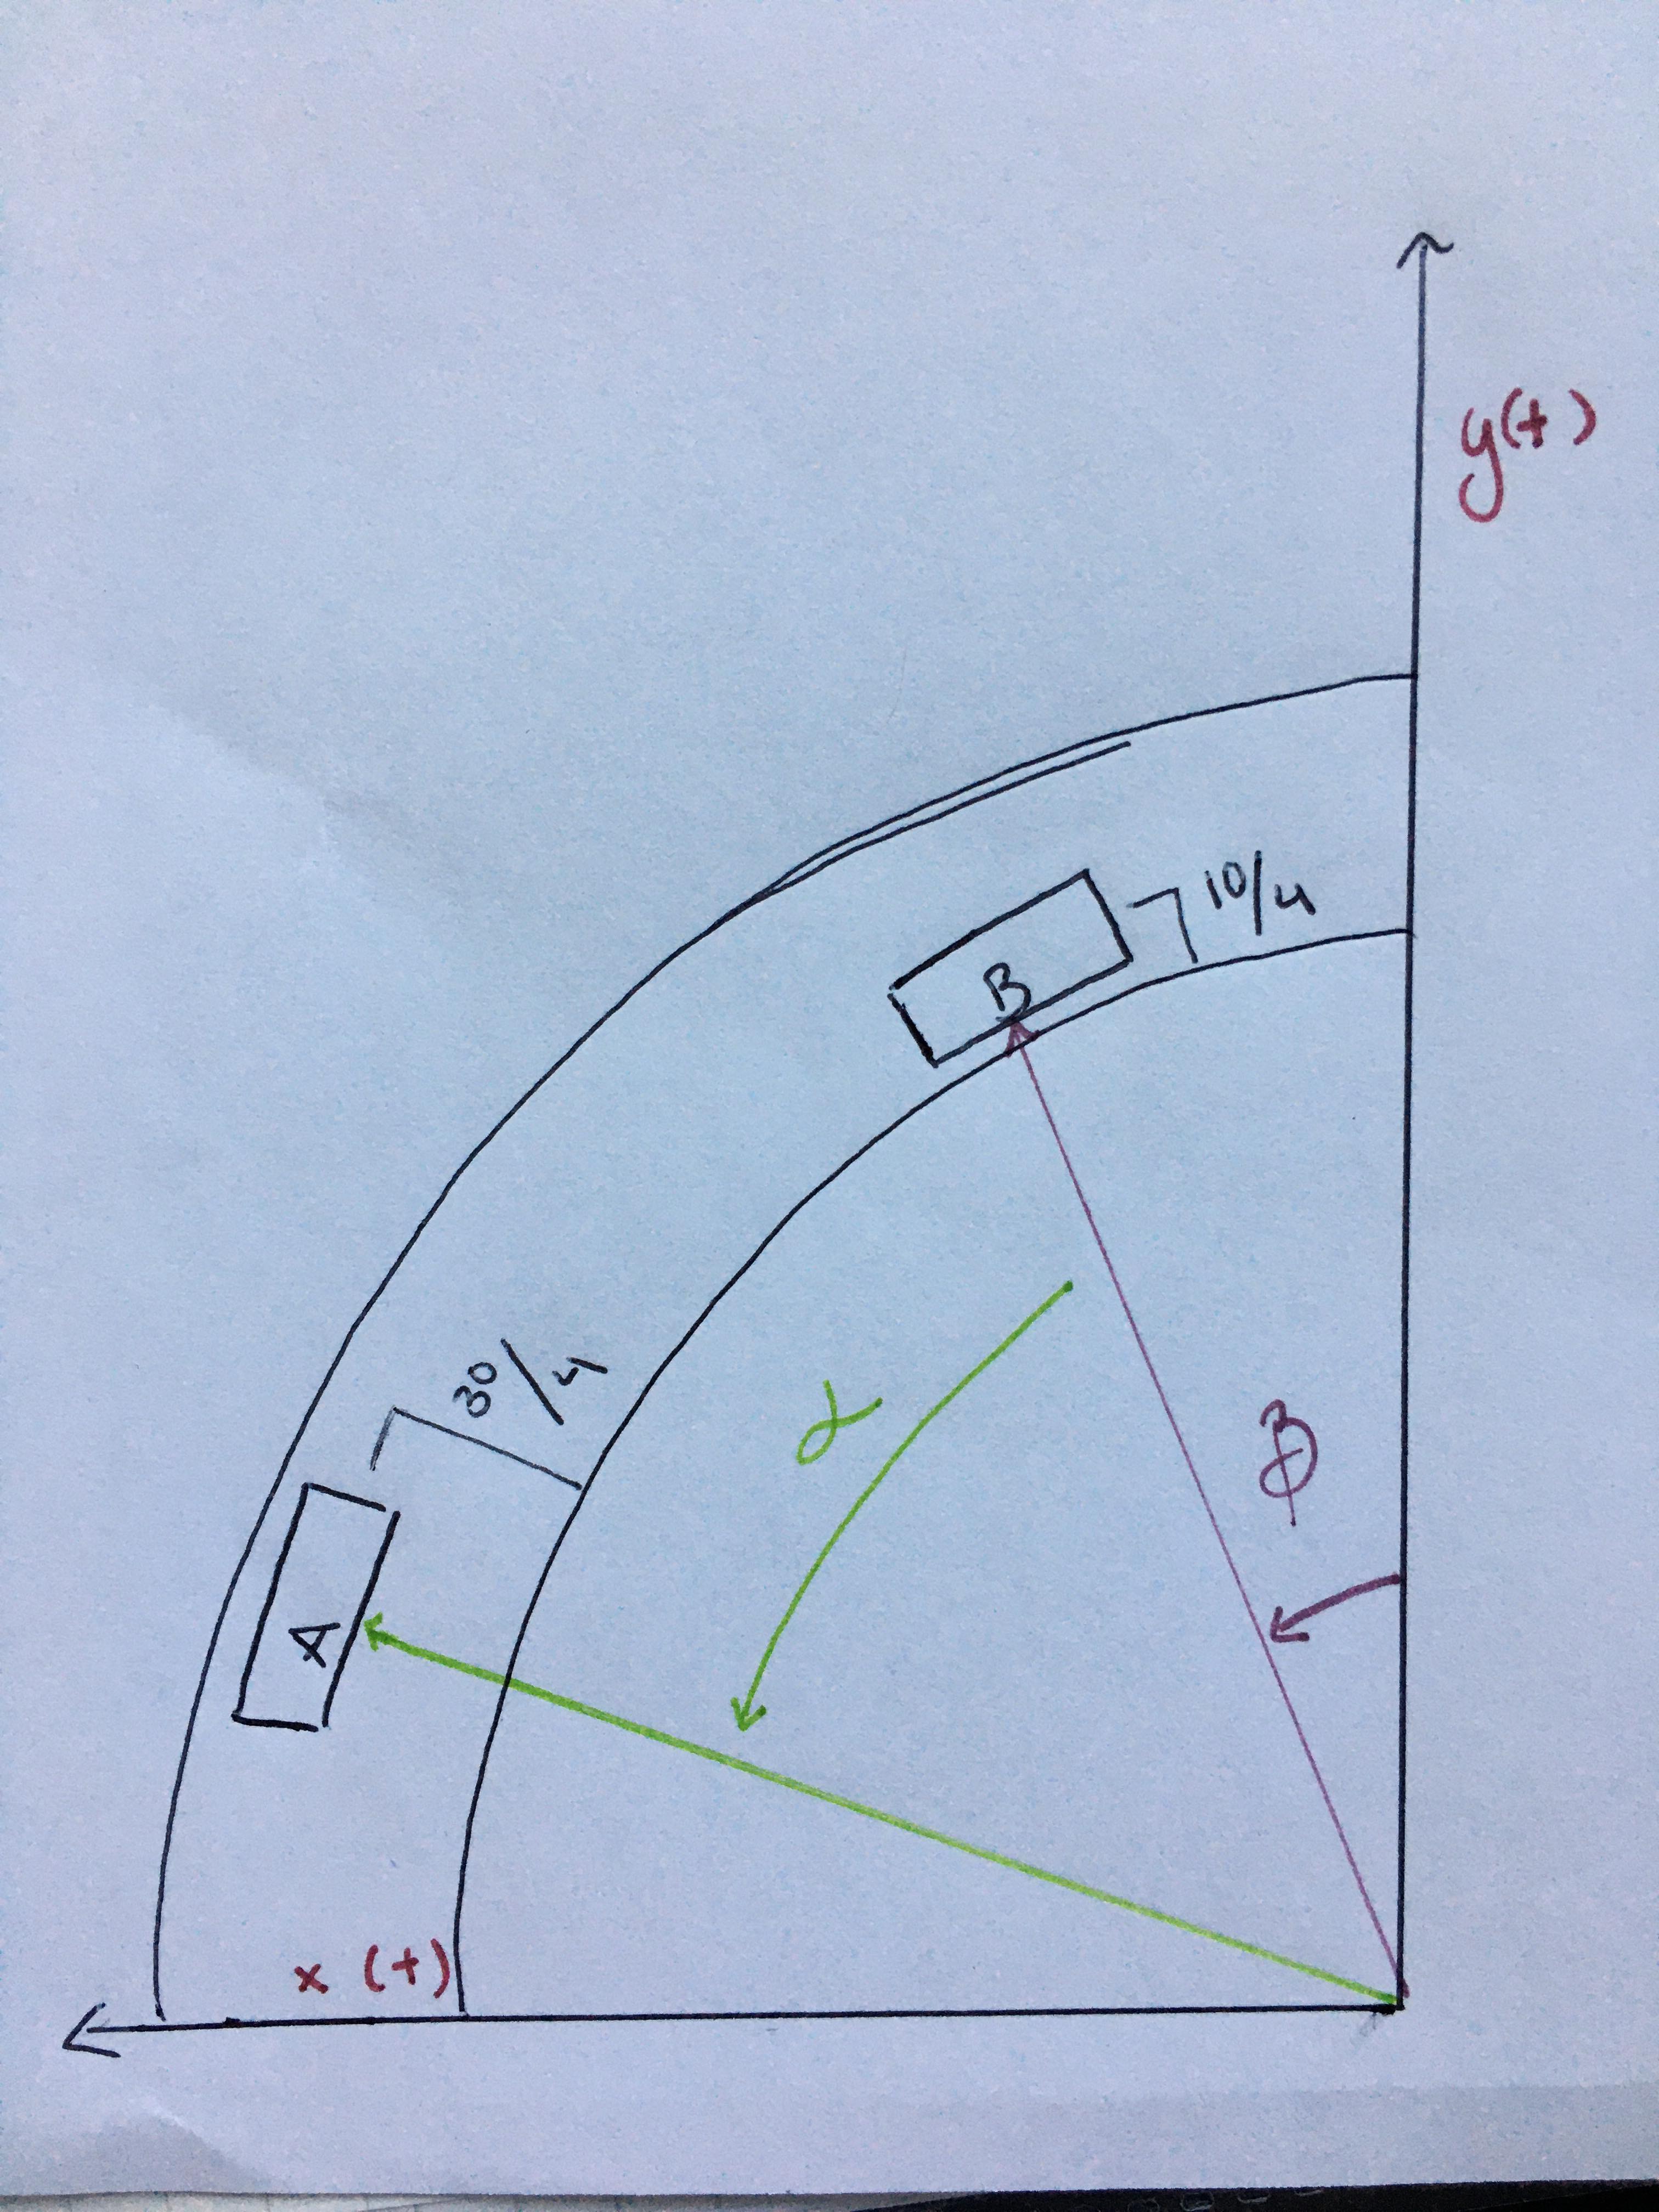 y(t)
10/4
B
30/4
α
β
A
x (t)